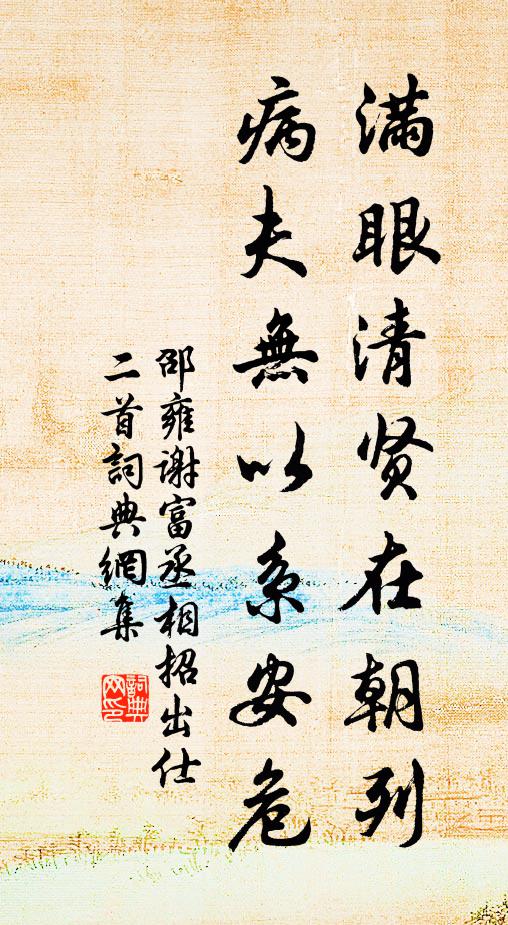 满眼清贤在朝列
病夫無以系安危
邵雍谢富丞相招出仕
二首詞典網集
詞典
网印